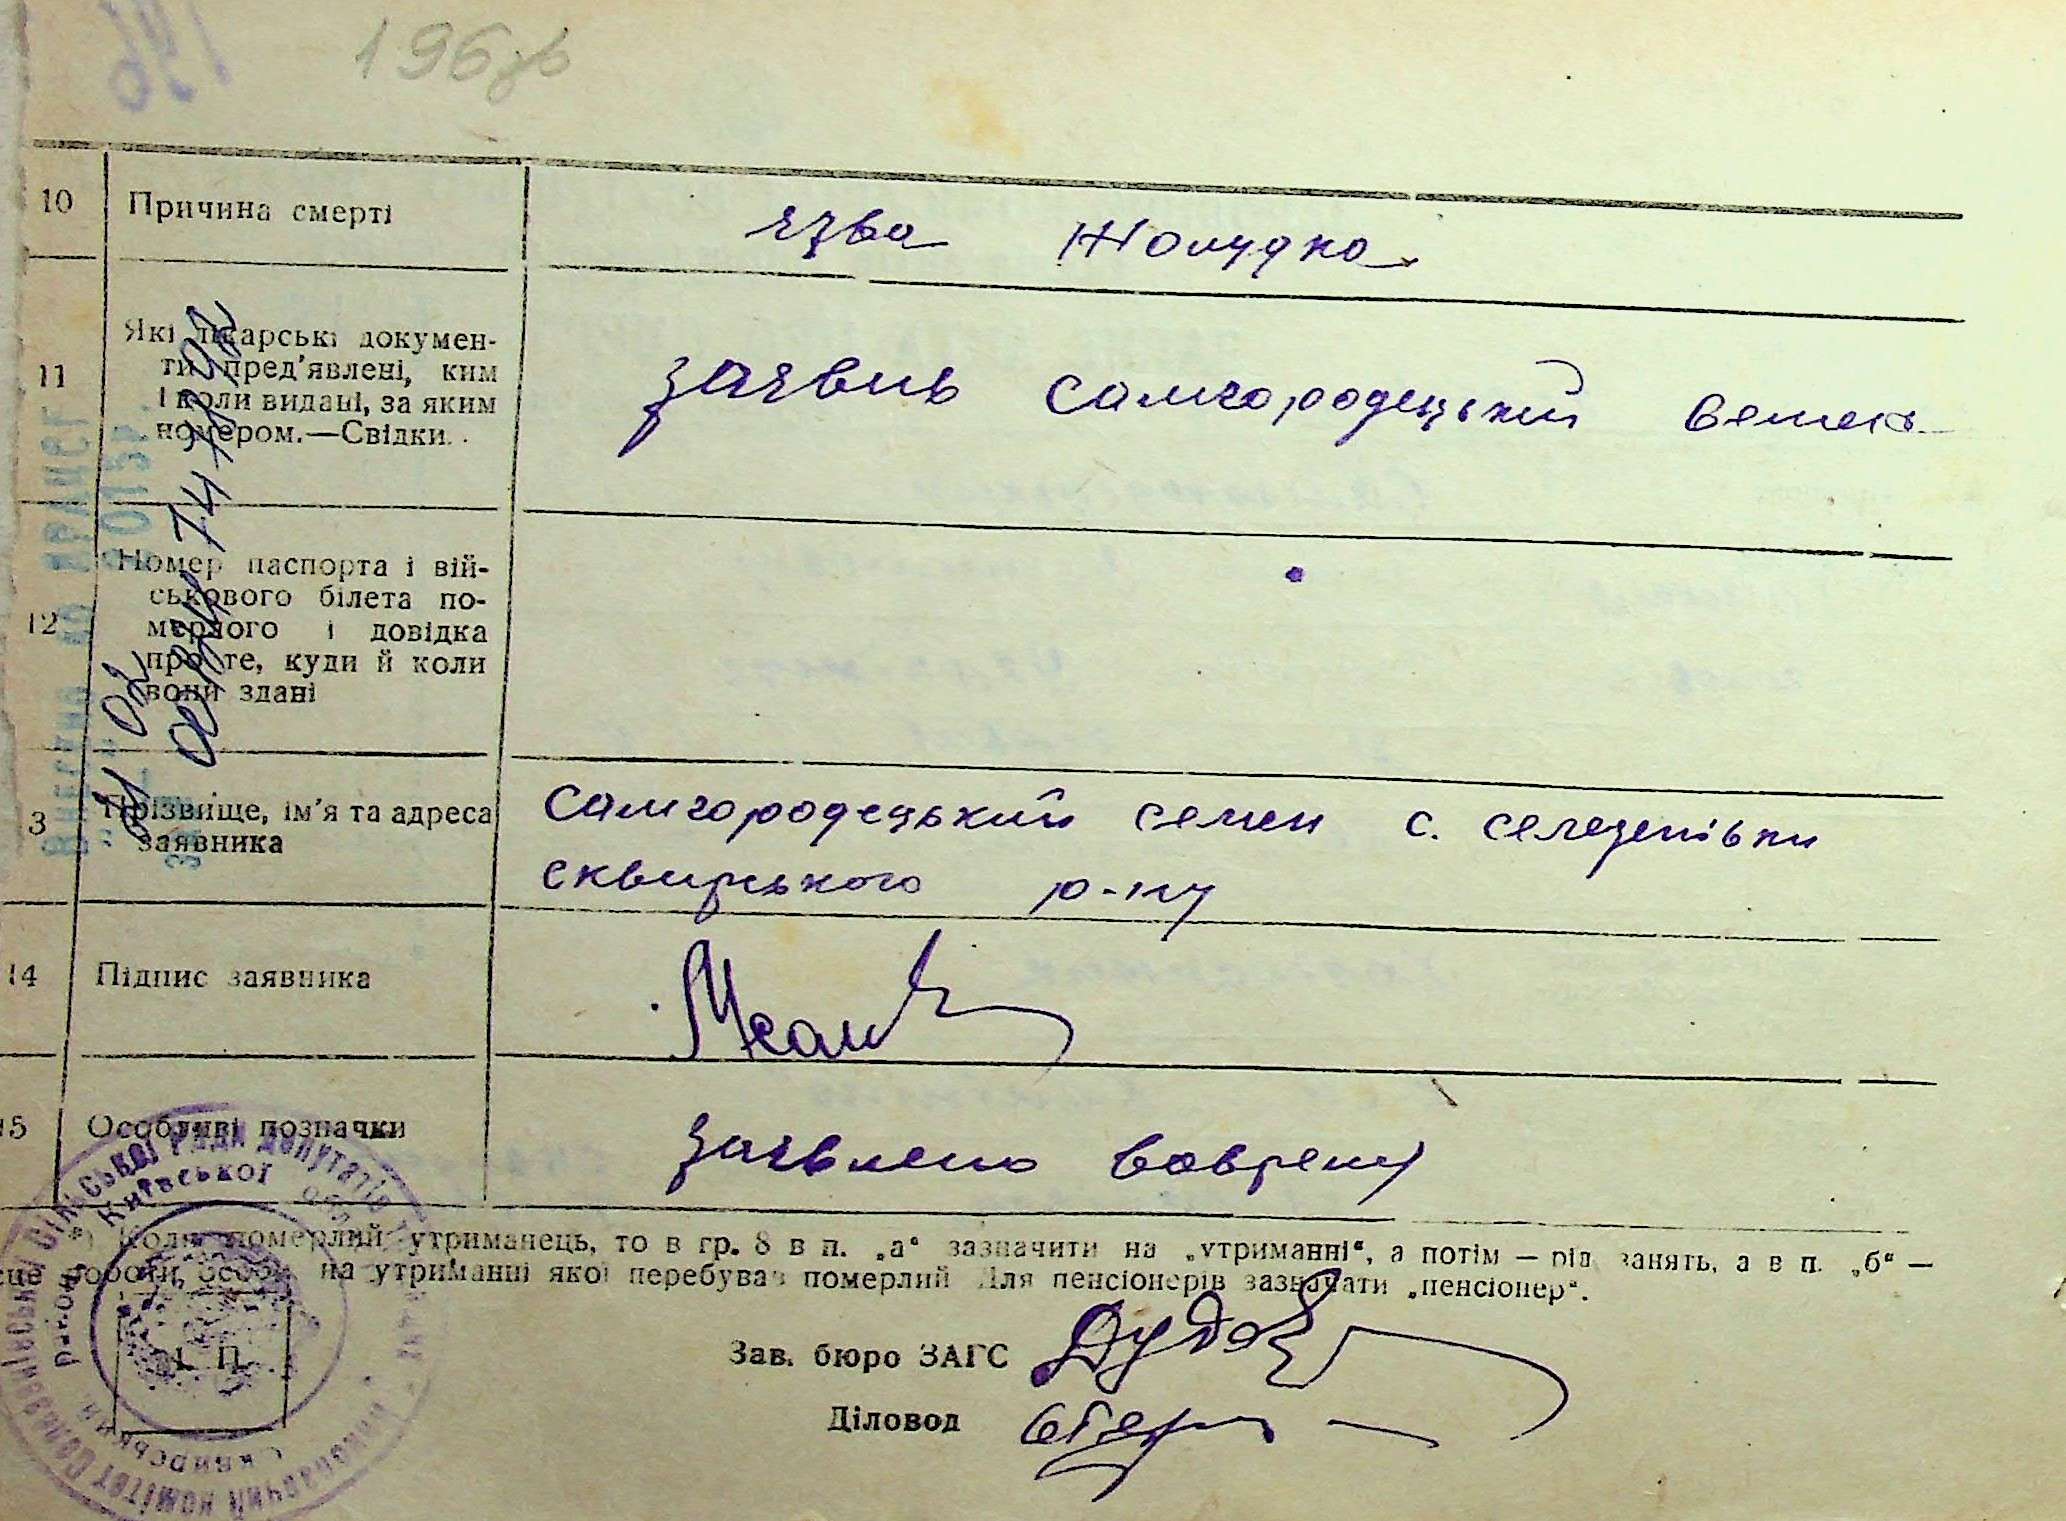 196зв
10 Причина смерті язва жолудка
11 Які лікарські докумен-
ти пред'явлені, ким
і коли видані, за яким
номером.—Свідки.
заявив Самгородецький Семен
12 Номер паспорта і вій-
ськового білета по-
мерлого і довідка
про те, куди й коли
вони здані
3 Прізвище, ім'я та адреса
заявника
Самгородецький Семен с. Селезенівки
Сквирського р-ну
14 Підпис заявника
15 Особливі позначки заявлено воврем
*) Коли померлий утриманець, то в гр. 8 в п. „а“ зазначити на „утриманні“, а потім — рід занять, а в п. „б“ —
сце роботи, особи, на утриманні якої перебував померлий Для пенсіонерів зазначати „пенсіонер“.
Зав. бюро ЗАГС
Діловод
М. П.
сільської Ради депутатів
Київської обл.
виконавчий комітет
Сквирський район